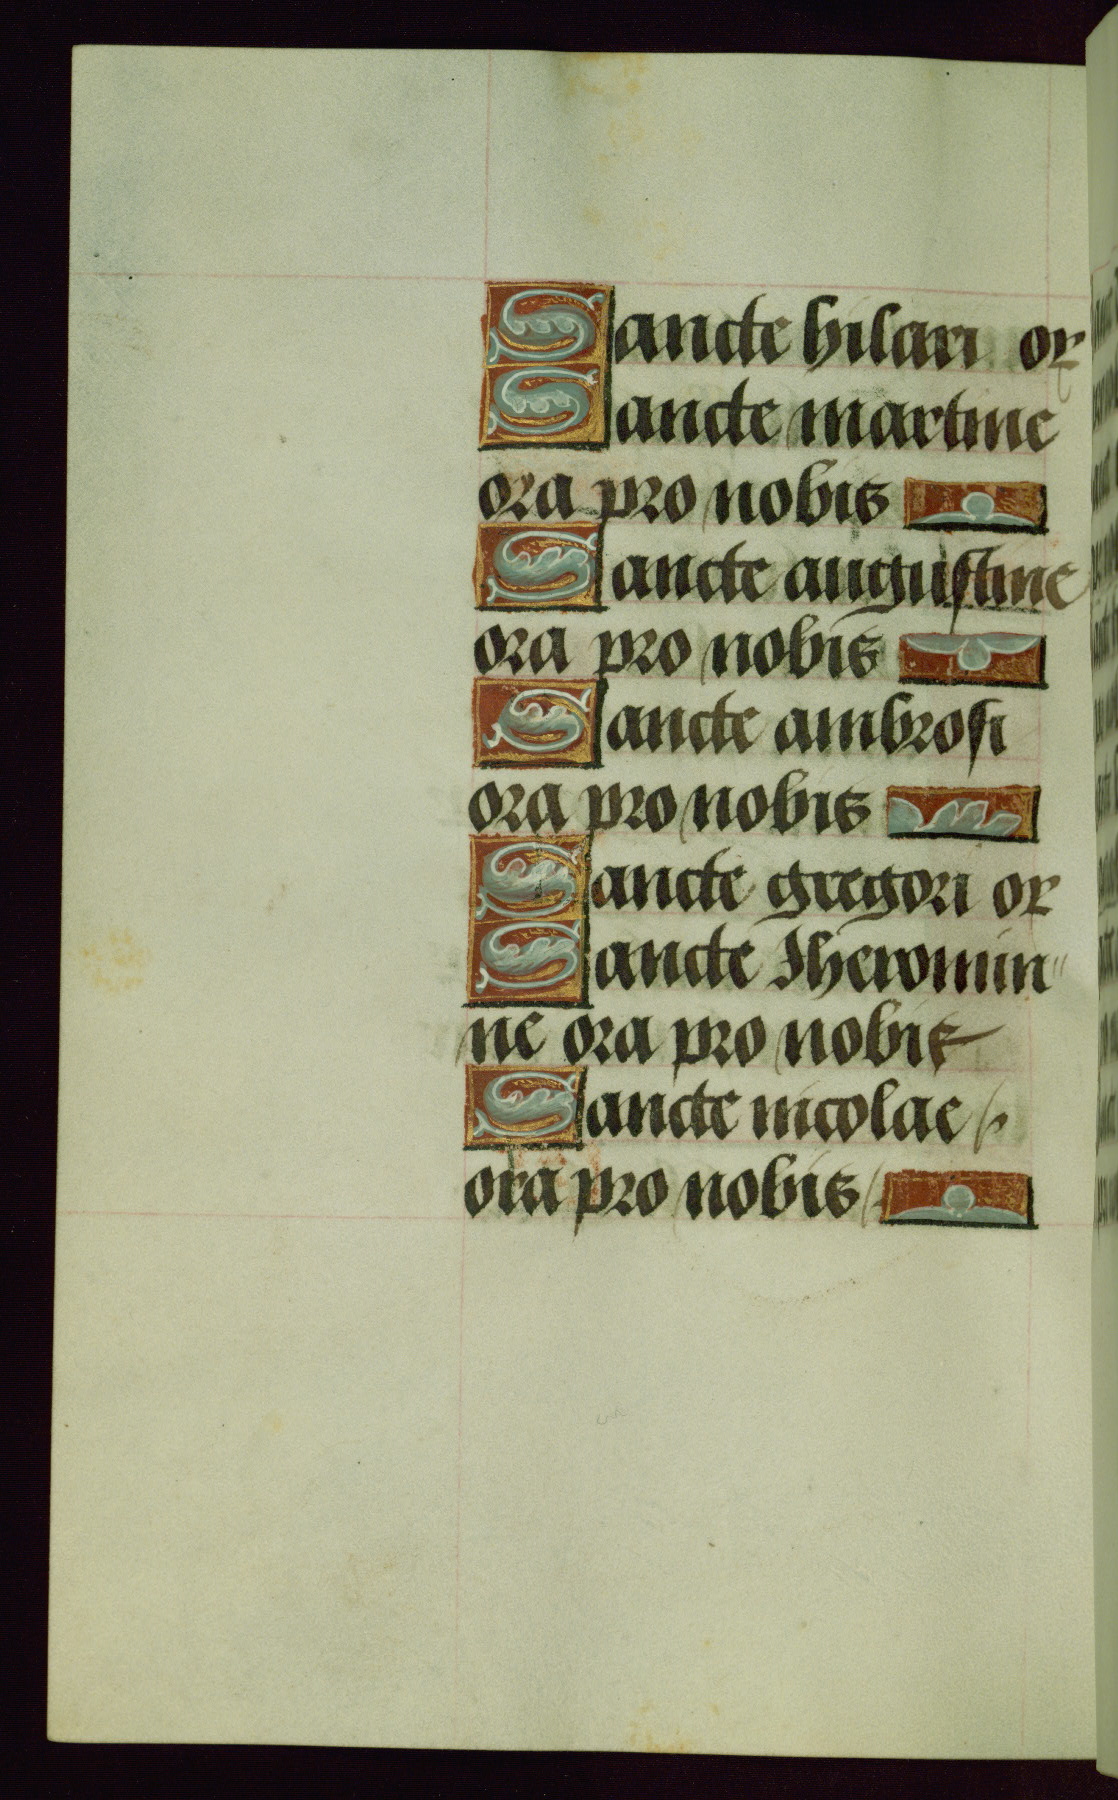 Sancte hilari or
Sancte martine
ora pro nobis
Sancte augustine
ora pro nobis
Sancte ambrosi
ora pro nobis
Sancte gregori or
Sancte Jheronim
ne ora pro nobis
Sancte nicolae
ora pro nobis